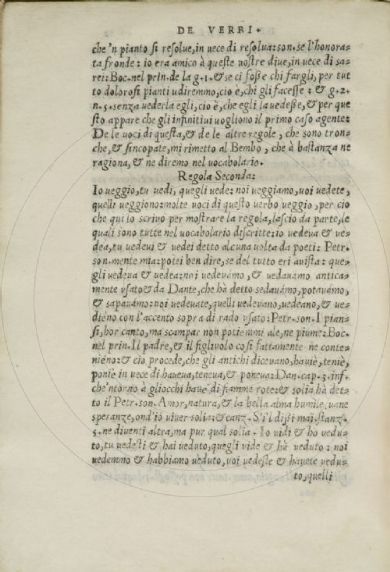 DE VERBI.
che 'n pianto si resolue, in uece di resolua: son. se l'honora-
ta fronde: io era amico à queste uostre diue, in uece di sa-
rei: Boc. nel prin. de la g. 1. & se ci fosse chi fargli, per tut
to dolorosi pianti udiremmo, cio è, chi gli facesse: & g. 2.
n. 5. senza uederla egli, cio è, che egli la uedesse, & per que
sto appare che gli infinitiui uogliono il primo caso agente:
De le uoci di questa, & de le altre regole, che sono tron-
che, & sincopate, mi rimetto al Bembo, che à bastanza ne
ragiona, & ne diremo nel uocabolario.
Regola Seconda:
Io ueggio, tu uedi, quegli uede: noi ueggiamo, uoi uedete,
quelli ueggiono: molte uoci di questo uerbo ueggio, per cio
che qui io scriuo per mostrare la regola, lascio da parte, le
quali sono tutte nel uocabolario discritte: io uedeua & ue-
dea, tu uedeui & uedei detto alcuna uolta da poeti: Petr.
son. mente mia: potei ben dire, se del tutto eri auista: que-
gli uedeua & uedea: noi uedeuamo, & uedauamo antica-
mente usato & da Dante, che hà detto sedauámo, potauámo,
& sapauámo: noi uedeuate, quelli uedeuano, uedeano, & ue-
dieno con l'accento sopra di rado usato: Petr. son. I pian-
si, hor canto, ma scampar non potiemmi ale, ne piume: Boc.
nel prin. Il padre, & il figliuolo così fattamente ne conte-
niéno: & cio procede, che gli antichi diceuano, hauiè, teniè,
poniè in uece di haueua, teneua, & poneua: Dan. cap. 3. inf.
che 'ntorno à gliocchi haue' di fiamme rote: & solia hà det-
to il Petr. son. Amor, natura, & la bella alma humile, uane
speranze, ond'io uiuer solia: & canz. S'i'l dissi mai. stanz.
5. ne diuenti altra, ma pur qual solia. Io uidi & ho uedu-
to, tu uedesti & hai ueduto, quegli uide & hà ueduto: noi
uedemmo & habbiano ueduto, uoi uedeste & hauete uedu-
to, quelli